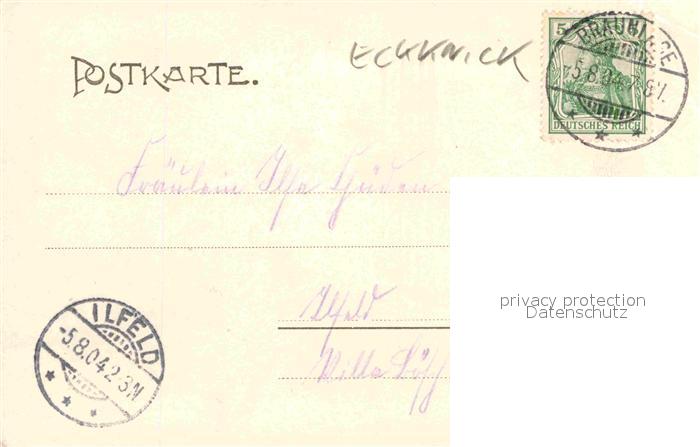 POSTKARTE.
ECKKNICK
5
BRAUNLAGE
5.8.04
DEUTSCHES REICH
Fräulein Ilse
Ilfeld
Villa
ILFELD
-5.8.04.2-3N
privacy protection
Datenschutz